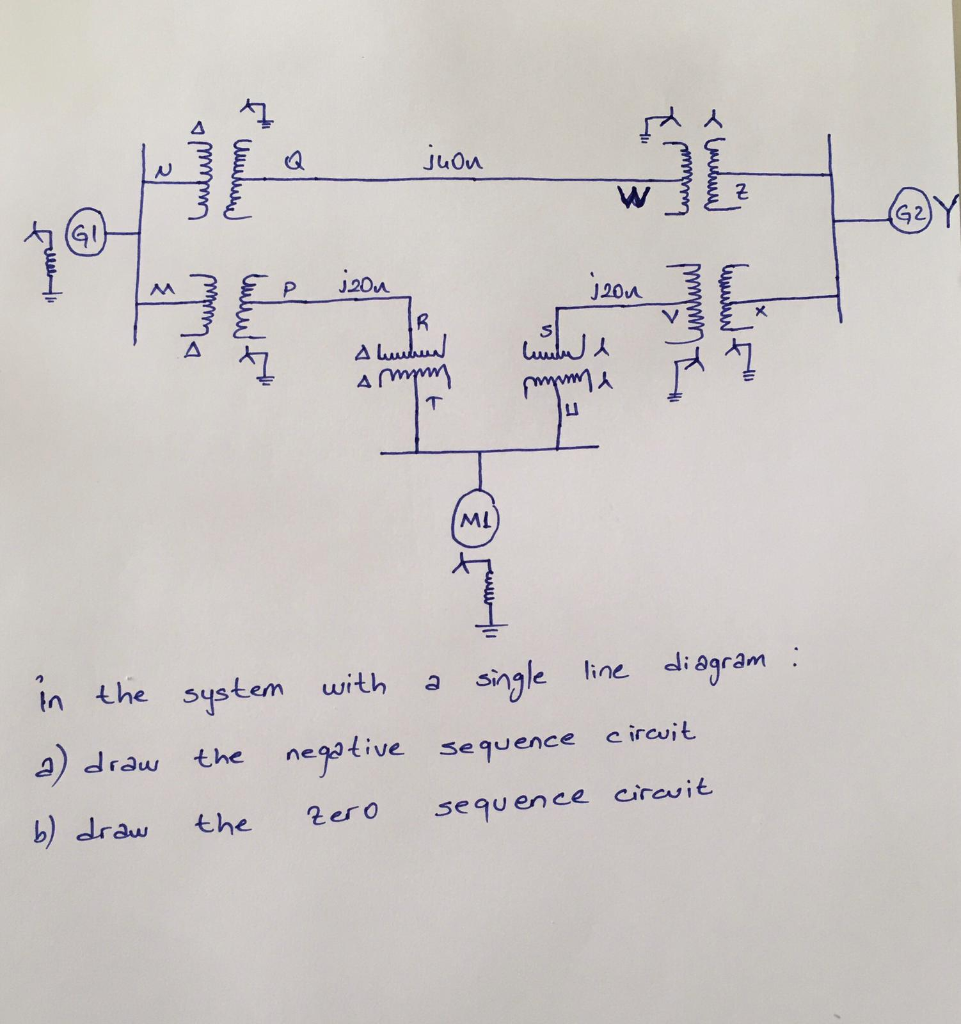 Δ
N
Q
j40Ω
W
Z
G1
G2 Y
M
P
j20Ω
j20Ω
V
X
Δ
R
S
Δ
Δ
T
U
M1
in the system with a single line diagram :
a) draw the negative sequence circuit
b) draw the zero sequence circuit